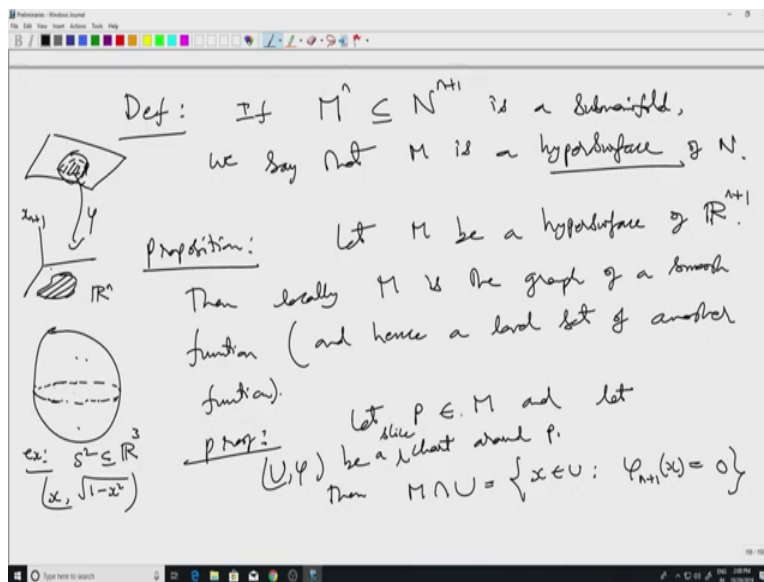 Preliminaries - Windows Journal
File Edit View Insert Actions Tools Help
B I
Def: If Mⁿ ⊆ Nⁿ⁺¹ is a submanifold,
we say that M is a hypersurface of N.
φ
xₙ₊₁
ℝⁿ
Proposition: Let M be a hypersurface of ℝⁿ⁺¹.
Then locally M is the graph of a smooth
function (and hence a level set of another
function).
proof: Let p ∈ M and let
(U, φ) be a slice chart around p.
Then M ∩ U = { x ∈ U : φₙ₊₁(x) = 0 }
ex: S² ⊆ ℝ³
(x, √1-x²)
Type here to search
ENG
2:08 PM
IN